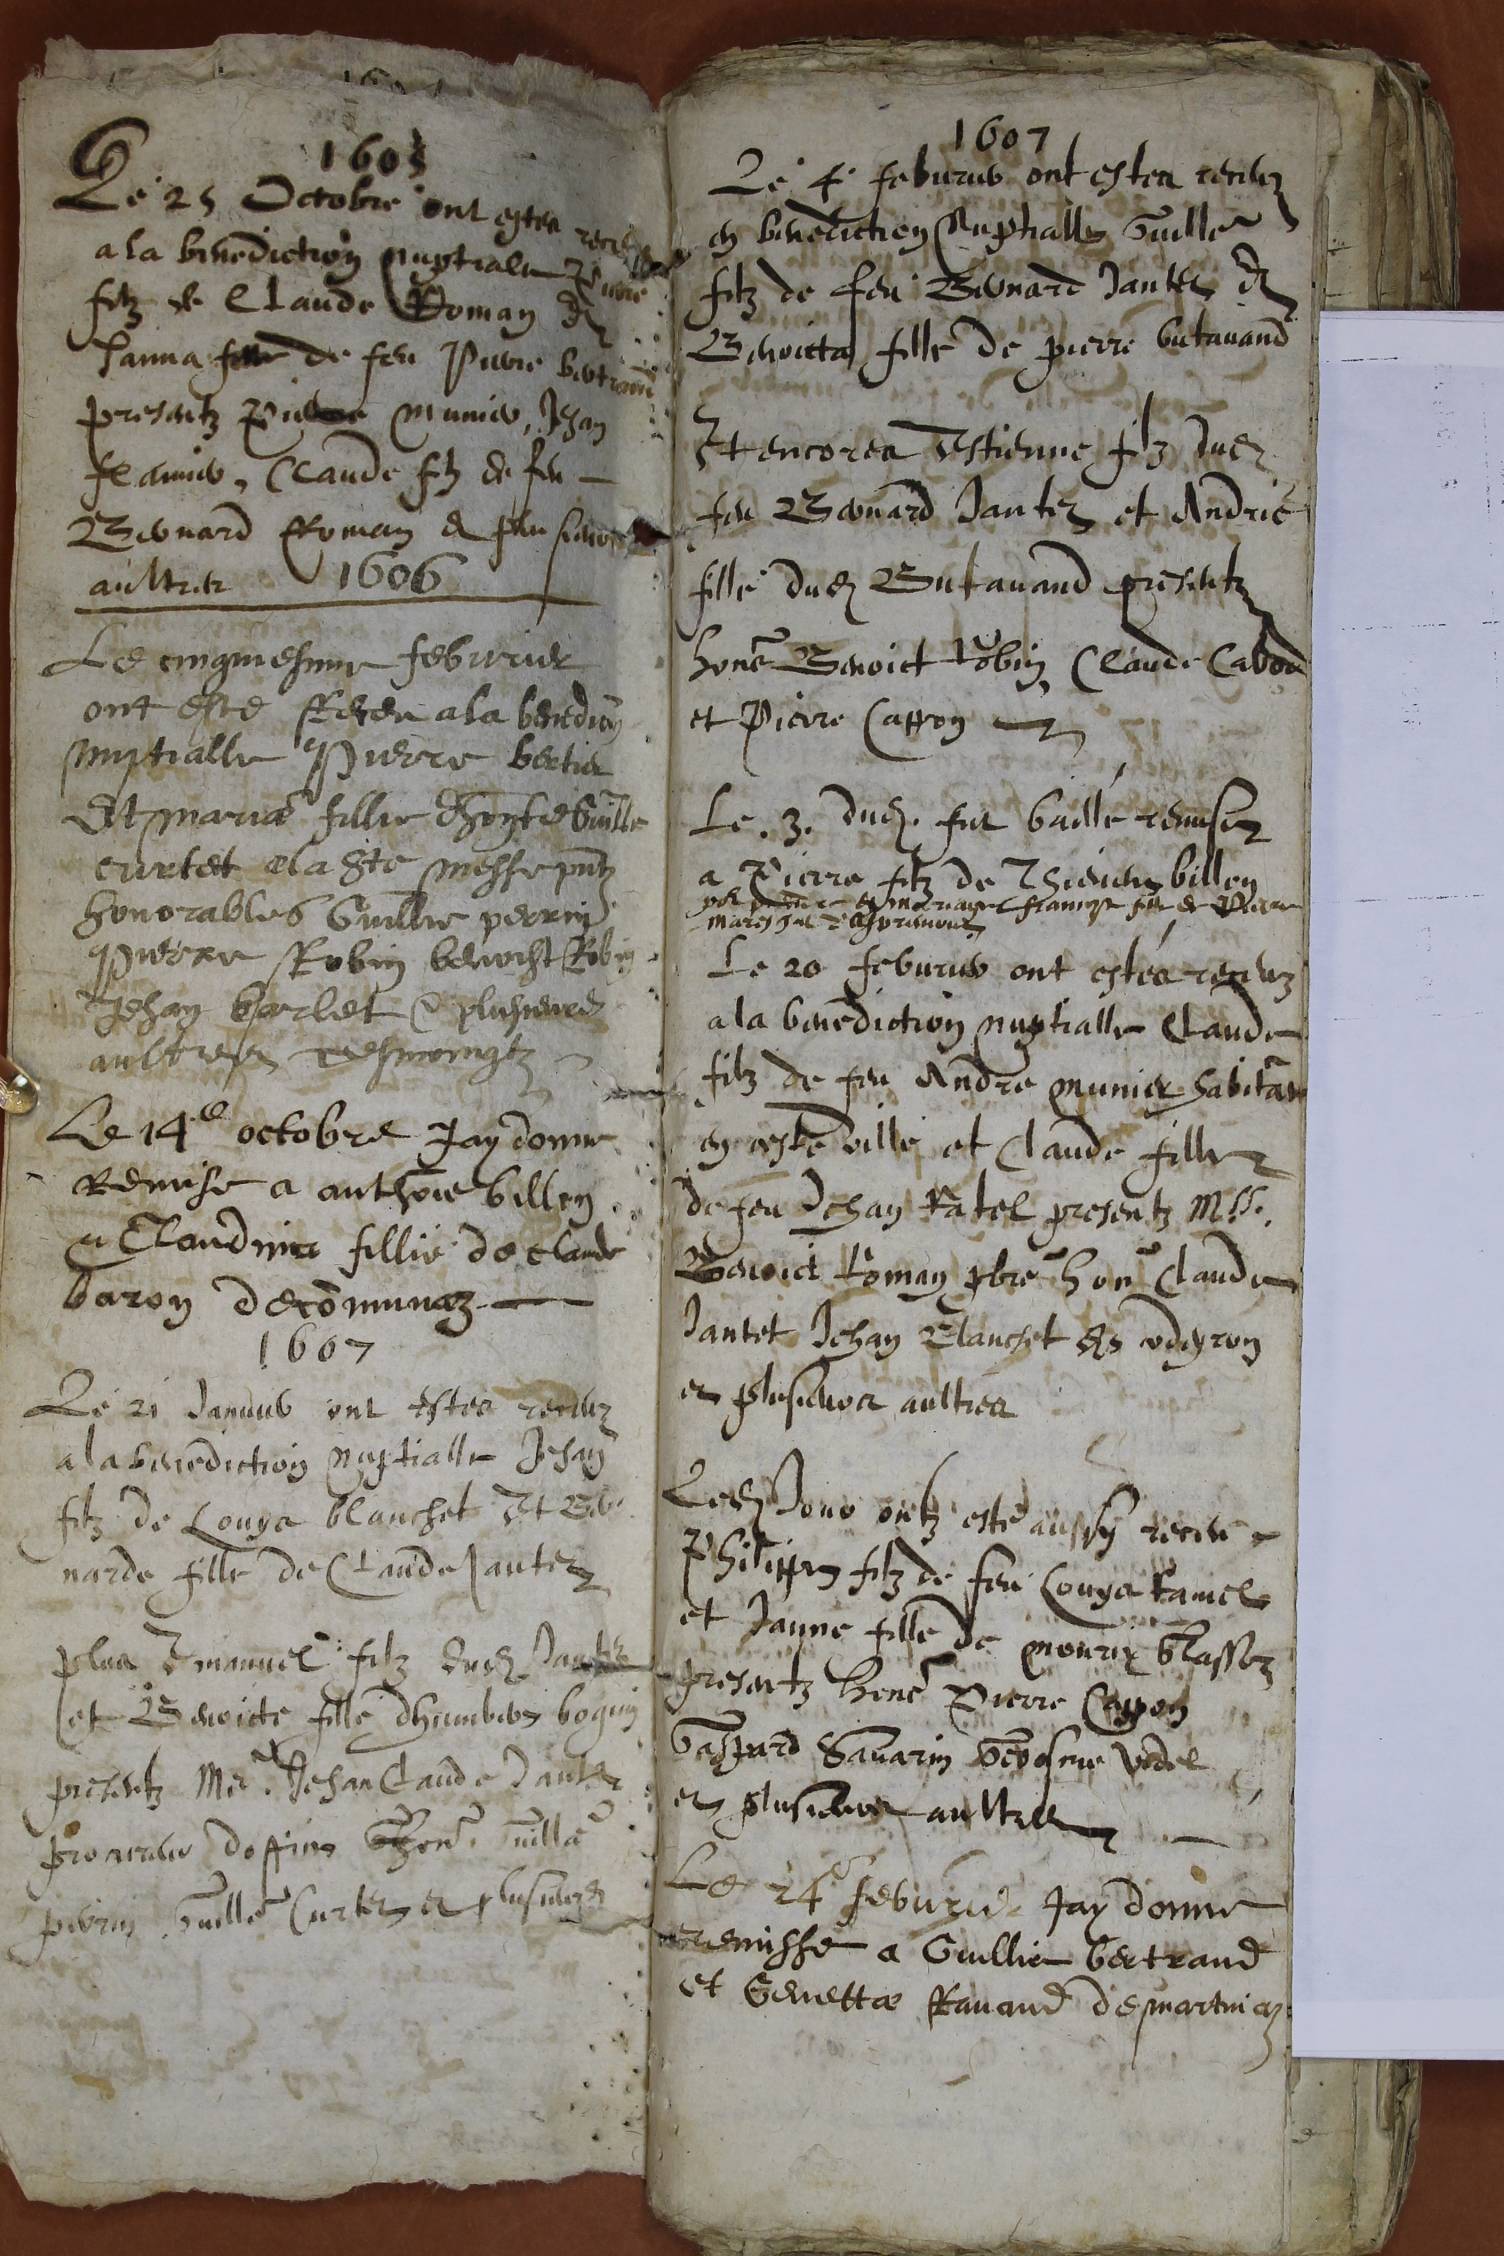 1605
Le 25 Octobre ont estea
a la benediction nuptiale Pierre
filz de Claude Roman et
Janna fille de feu Pierre bertrand
presentz Pierre Munier, Jehan
Claude filz de feu
Bernard Roman et plusieurs
aultres 1606
Le cinquiesme febvrier
ont este a la benediction
nuptialle Pierre bertier
Et maria fillie Guille
curtet a la ste messe pntz
honorables Guillie perrin
Pierre Robin benoist Robin
Jehan barlet & plusieurs
aultres tesmoingtz
Le 14e octobre Jay donne
Remise a anthoie billen
a Claudina fillie de claude
baron de comunaz
1607
Le 21 Janvier ont estea receuz
a la benediction nuptialle Jehan
filz de Louys blanchet Et Ber
narde fille de Claude Jantez
plus Emanuel filz dud. Jantet
et Benoicte fille dhumbers boguin
presentz Mre. Jehan Claude Jantet
procureur doffice honn. Guille
perrin Guille Curtet et plusieurs
1607
Le 4 feburier ont estea receuz
en benediction Nuptialle Guille
filz de feu Bernard Jantet et
Benoicta fille de pierre butavand
Et encorea Estienne filz dud
feu Bernard Jantet et Andrie
fille dud Butavand presentz
hone Benoict Robin, Claude Cabod
et Pierre Cappon
Le 3. dud. fut baillé remise
a Pierre filz de Thievent billen
mariage francoyse fille de Pierre
Le 20 feburier ont estéa receuz
a la benediction nuptialle Claude
filz de feu André munier habitan
en ceste ville et Claude fille
de feu Jehan Ratel presentz Mss.
Benoict Roman pbre hon Claude
Jantet Jehan Blanchet
et plusieurs aultrea
Led Jour ontz esté aussy receu
Philippes filz de feu Louys Ramel
et Janne fille de mourix
presentz hone Pierre Cappon
Gaspard Savarin Vidal
et plusieurs aultres
Le 24e feburier Jay donne
remisse a Guillie bertrand
et Genetta Ravaud de martniaz